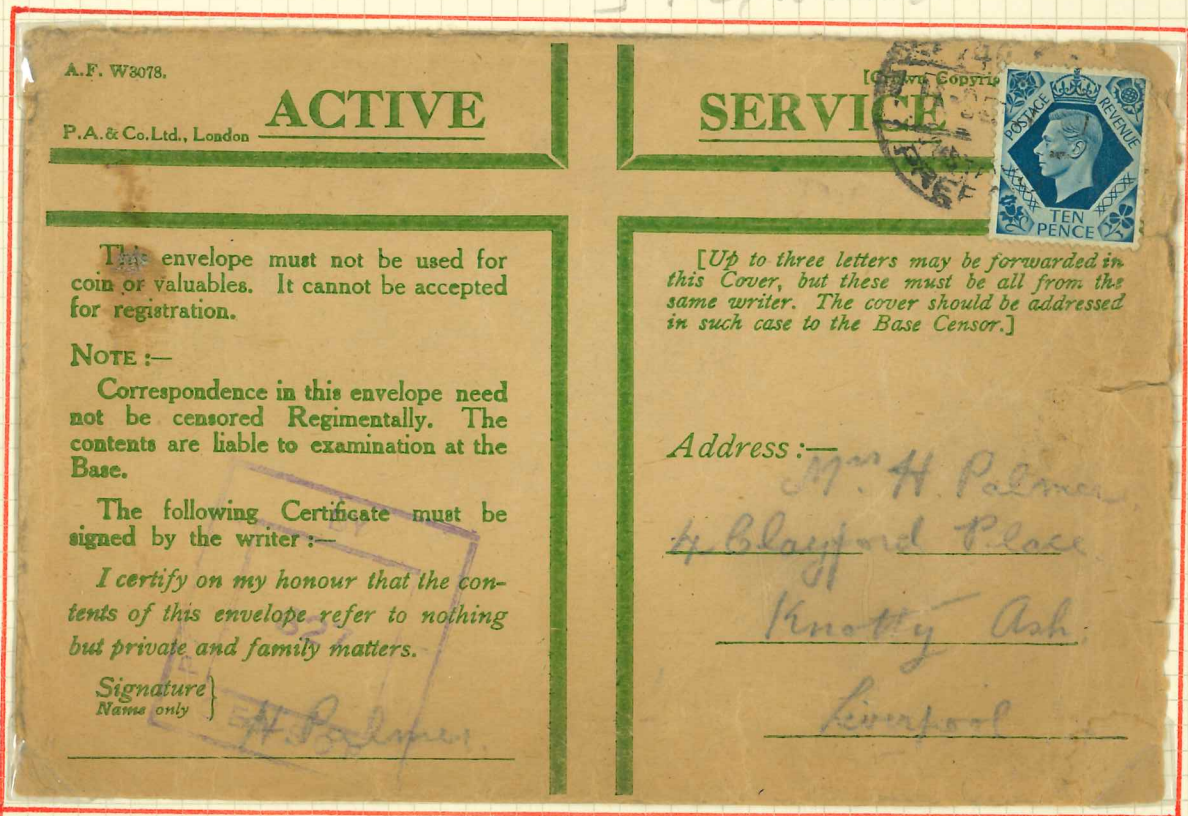 A.F. W3078.
P.A.& Co.Ltd., London
ACTIVE
This envelope must not be used for
coin or valuables. It cannot be accepted
for registration.
NOTE :—
Correspondence in this envelope need
not be censored Regimentally. The
contents are liable to examination at the
Base.
The following Certificate must be
signed by the writer :—
I certify on my honour that the con-
tents of this envelope refer to nothing
but private and family matters.
Signature}
Name only
H. Palmer.
SERVICE
POSTAGE REVENUE
TEN
PENCE
[Up to three letters may be forwarded in
this Cover, but these must be all from the
same writer. The cover should be addressed
in such case to the Base Censor.]
Address :—
Mrs H. Palmer
4 Clayford Place
Knotty Ash
Liverpool